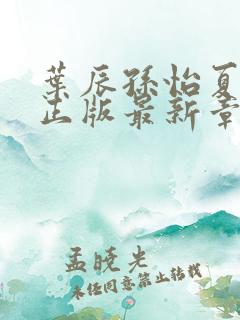 葉辰孫怡夏
正版最新章
孟曉光
未經同意禁止轉載